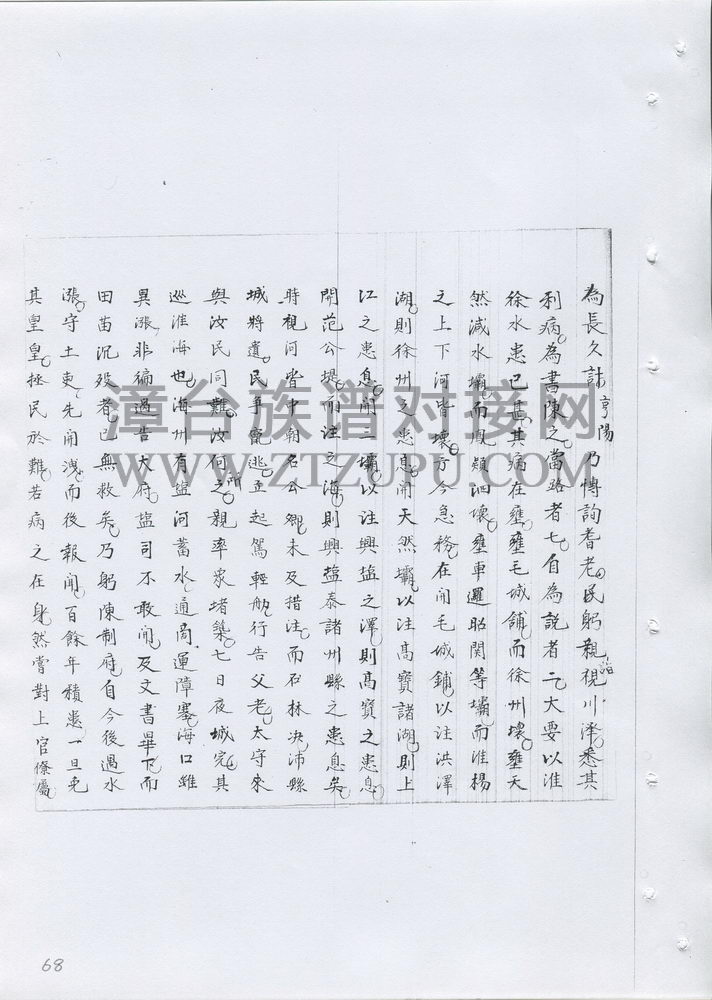 為長久計亨陽乃博詢耆老民躬親詣視川澤悉其
利病為書陳之當路者七自為說者二大要以淮
徐水患已甚其病在壅壅毛城舖而徐州壞壅天
然減水壩而鳳潁泗壞壅車邏昭関等壩而淮楊
之上下河皆壞方今急務在開毛城鋪以注洪澤
湖則徐州之患息開天然壩以注高寶諸湖則上
江之患息開三壩以注興塩之澤則高寶之患息
開范公堤而注之海則興塩泰諸州縣之患息矣
時視河皆中朝名公卿未及措注而石林決沛縣
城將遺民爭竄逃亟起駕輕舠行告父老太守來
與汝民同難汝何之親率衆堵築七日夜城完其
巡淮海也海州有塩河蓄水通商運障塞海口雖
異漲非徧過告大府塩司不敢開及文書畢下而
田苗沉殁者已無救矣乃躬陳制府自今後遇水
漲守土吏先開洩而後報聞百餘年積患一旦免
其皇皇拯民於難若病之在身然嘗對上官僚屬
漳台族谱对接网
WWW.ZTZUPU.COM
68